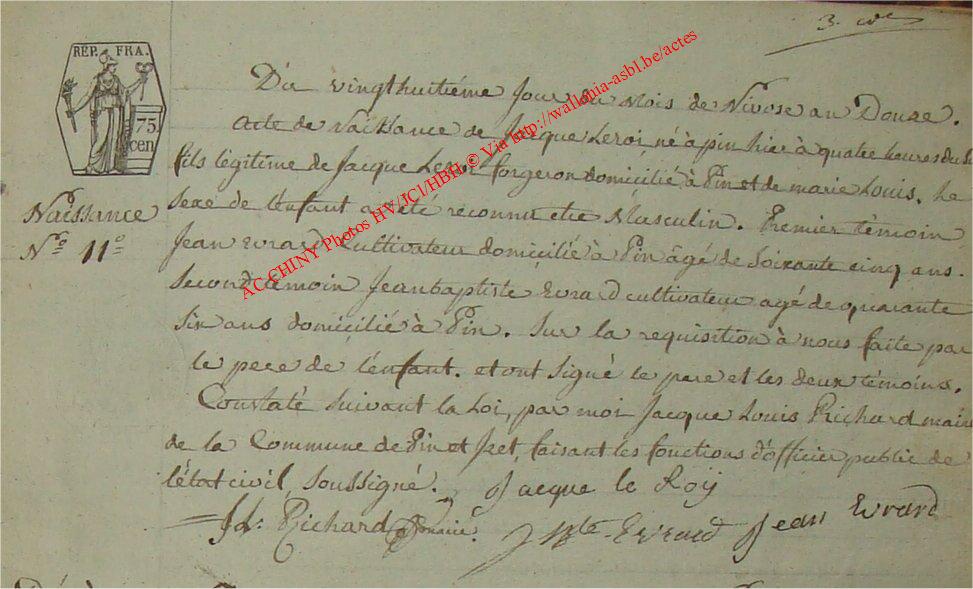 3. 
REP. FRA.
75 cen
Du vingthuitiéme jour du Mois de Nivose an Douze.
Acte de Naissance de Jacque Leroi, né à pin hier à quatre heures du
fils légitime de Jacque Leroi forgeron domicilié à Pin et de marie Louis. Le
Naissance
sexe de l'enfant a été réconnu etre Masculin. Premier témoin
N.ro 11.o
Jean Evrard Cultivateur domicilié à Pin âgé de Soixante cinq ans.
Second témoin Jeanbaptiste Evrard cultivateur agé de quarante
Six ans domicilié à Pin. Sur la requisition à nous faite par
le pere de l'enfant. et ont signé le pere et les deux témoins.
Constaté suivant la Loi, par moi Jacque Louis Richard maire
de la Commune de Pin et Izel, faisant les fonctions d'officier public de
l'état civil, soussigné. Jacque le Roÿ
JL. Richard maire. J Bte Evrard Jean Evrard
AC CHINY Photos HV/JCI/HBH © Via http://wallonia-asbl.be/actes